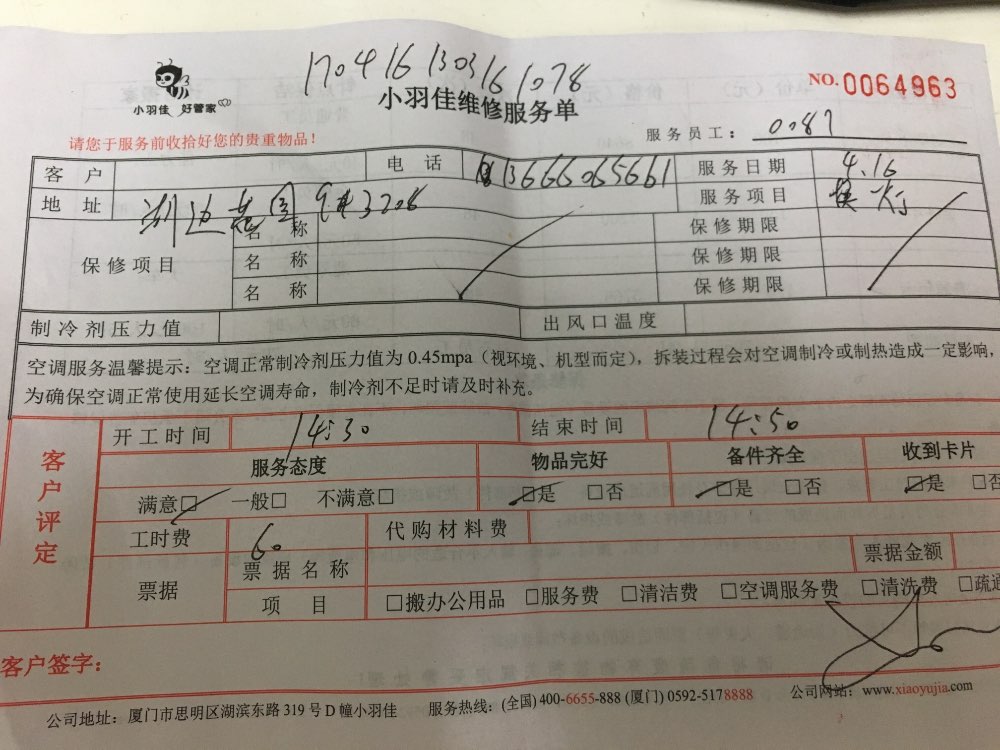 1704161303161078
小羽佳 好管家
小羽佳维修服务单
NO.0064963
请您于服务前收拾好您的贵重物品！
服务员工： 0087
客户 电话 13666065661 服务日期 4.16
地址 湖边花园 3206 服务项目 换灯
保修项目 名称 保修期限
名称 保修期限
名称 保修期限
制冷剂压力值 出风口温度
空调服务温馨提示：空调正常制冷剂压力值为0.45mpa（视环境、机型而定），拆装过程会对空调制冷或制热造成一定影响，
为确保空调正常使用延长空调寿命，制冷剂不足时请及时补充。
客户评定
开工时间 14:30 结束时间 14:50
服务态度 物品完好 备件齐全 收到卡片
满意□ 一般□ 不满意□ □是 □否 □是 □否 □是 □否
工时费 60 代购材料费
票据 票据名称 票据金额
项目 □搬办公用品 □服务费 □清洁费 □空调服务费 □清洗费 □疏通
客户签字：
公司地址：厦门市思明区湖滨东路319号D幢小羽佳 服务热线：(全国) 400-6655-888 (厦门) 0592-5178888 公司网站：www.xiaoyujia.com